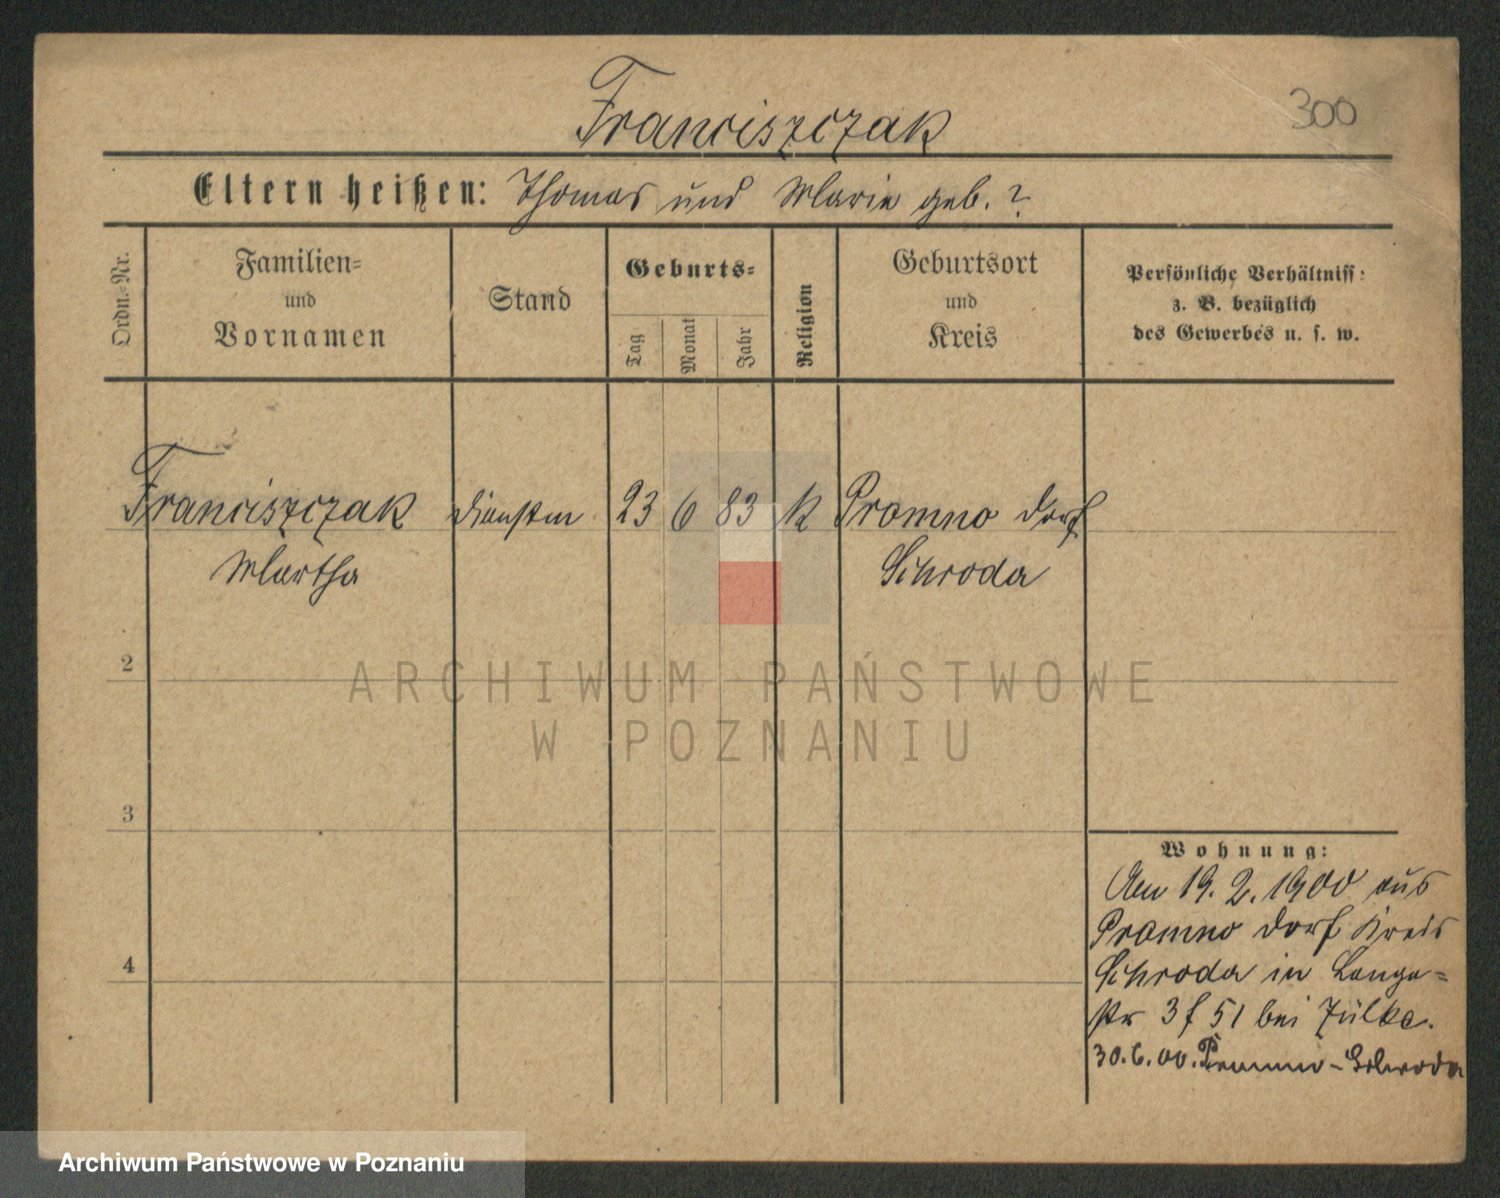 Franciszczak
300
Eltern heißen: Thomas und Marie geb. ?
Ordn.-Nr.
Familien-
und
Vornamen
Stand
Geburts-
Tag
Monat
Jahr
Religion
Geburtsort
und
Kreis
Persönliche Verhältniss:
z. B. bezüglich
des Gewerbes u. s. w.
Franciszczak dienstm 23 6 83 k Promno dorf
Martha Schroda
2
3
4
Wohnung:
Am 19. 2. 1900 aus
Promno dorf Kreis
Schroda in Lange-
str 3 f 51 bei Jülke.
30.6.00. Promno - Schroda
ARCHIWUM PAŃSTWOWE
W POZNANIU
Archiwum Państwowe w Poznaniu